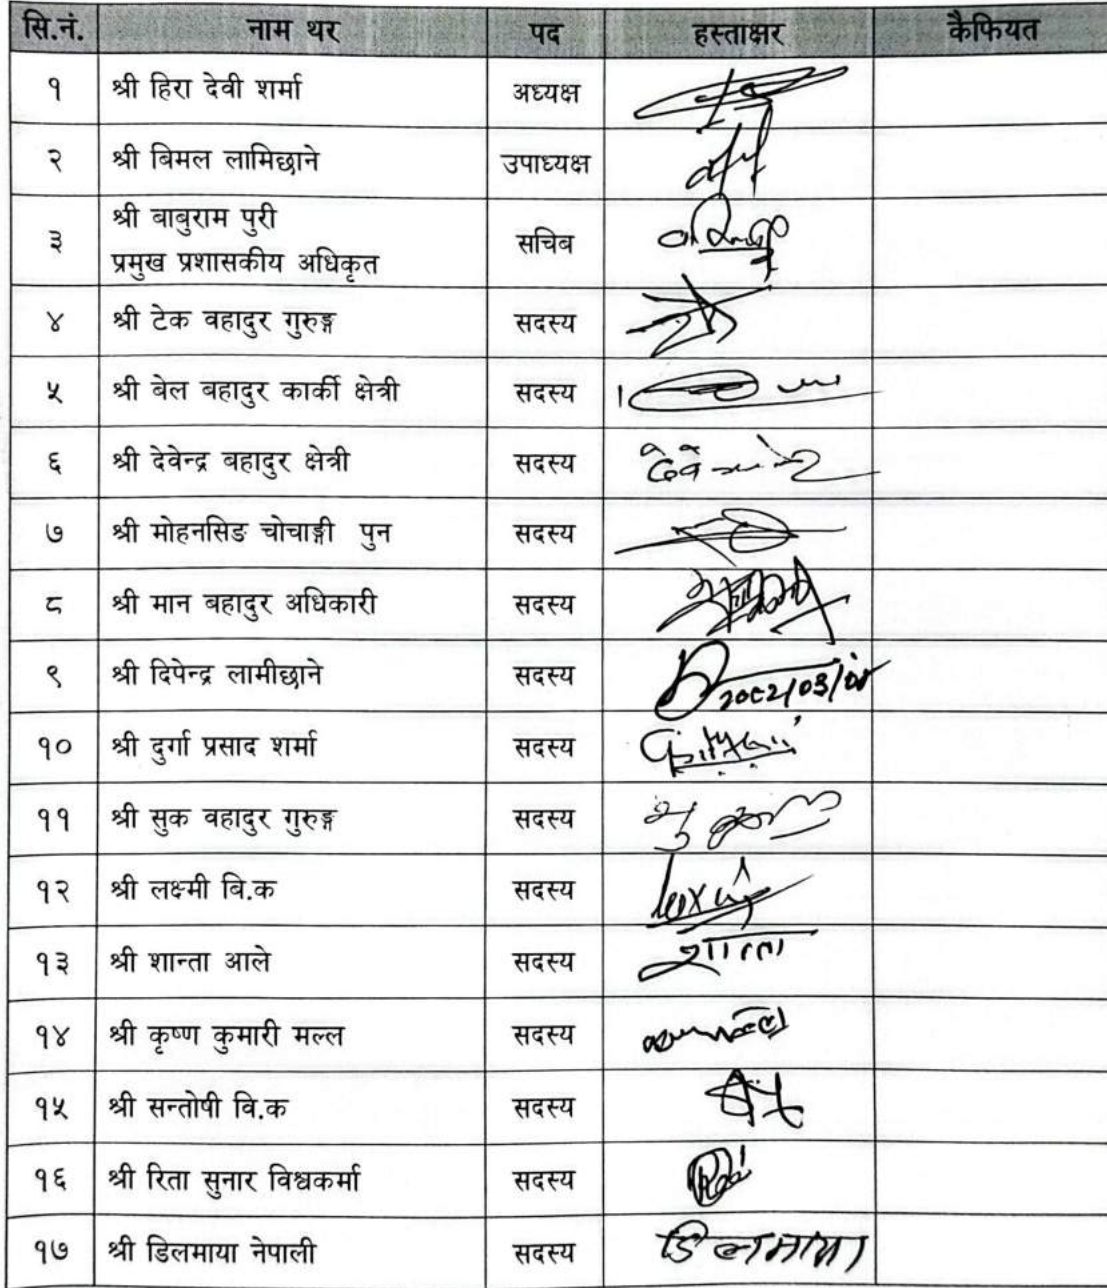 सि.नं. नाम थर पद हस्ताक्षर कैफियत
१ श्री हिरा देवी शर्मा अध्यक्ष
२ श्री बिमल लामिछाने उपाध्यक्ष
३ श्री बाबुराम पुरी सचिब
प्रमुख प्रशासकीय अधिकृत
४ श्री टेक वहादुर गुरुङ्ग सदस्य
५ श्री बेल बहादुर कार्की क्षेत्री सदस्य
६ श्री देवेन्द्र बहादुर क्षेत्री सदस्य
७ श्री मोहनसिङ चोचाङ्गी पुन सदस्य
८ श्री मान बहादुर अधिकारी सदस्य
९ श्री दिपेन्द्र लामीछाने सदस्य
१० श्री दुर्गा प्रसाद शर्मा सदस्य
११ श्री सुक वहादुर गुरुङ्ग सदस्य
१२ श्री लक्ष्मी बि.क सदस्य
१३ श्री शान्ता आले सदस्य
१४ श्री कृष्ण कुमारी मल्ल सदस्य
१५ श्री सन्तोषी वि.क सदस्य
१६ श्री रिता सुनार विश्वकर्मा सदस्य
१७ श्री डिलमाया नेपाली सदस्य डिलमाया